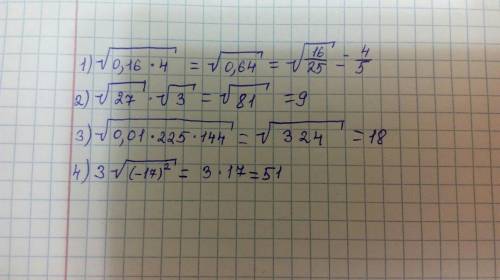 1) √0,16·4 = √0,64 = √16/25 = 4/5
2) √27 · √3 = √81 = 9
3) √0,01·225·144 = √324 = 18
4) 3√(-17)² = 3·17=51